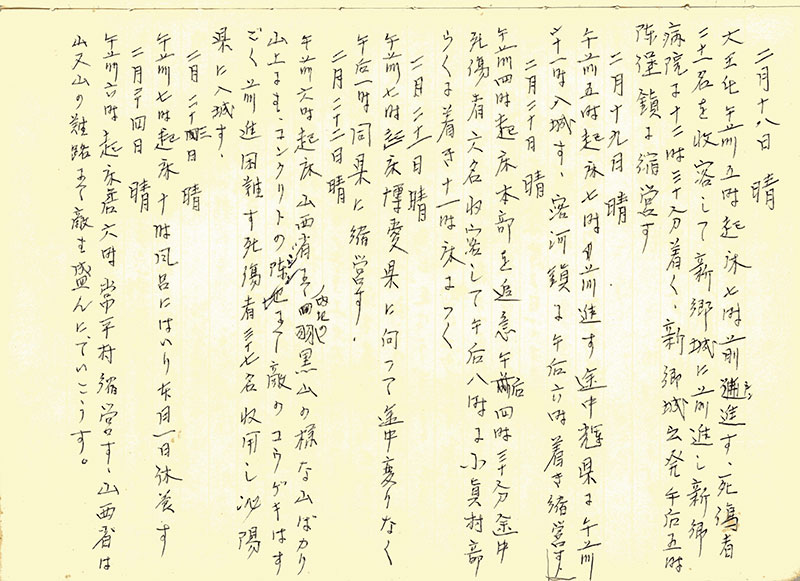 二月十八日　晴
大王化午前五時起床七時前進す、死傷者
二十名を収容して新郷城に前進し新郷
病院に十二時三十分着く、新郷城出発午后五時
陳堡鎮に宿営す
二月十九日　晴
午前五時起床七時前進す途中輝県に午前
十一時入城す、容河鎮に午后六時着き宿営す、
二月二十日　晴
午前四時起床本部を追急午后四時三十分途中
死傷者六名収容して午后八時に小貞村部
らくに着き十一時床につく
二月二十一日　晴
午前七時起床博愛県に向って途中変りなく
午后一時同県に宿営す.
二月二十二日　晴
午前六時起床山西省に至四羽黒山の様な山ばかり
山上にすコンクリトの陳地にて敵のコウゲキはす
ごく前進困難す死傷者三十七名収用し泌陽
県に入城す.
二月二十三日　晴
午前七時起床十時風呂にはいり本日一日休養す
二月二十四日　晴
午前六時起床店六時常平村宿営す、山西省は
山又山の難路にて敵も盛んにていこうす。